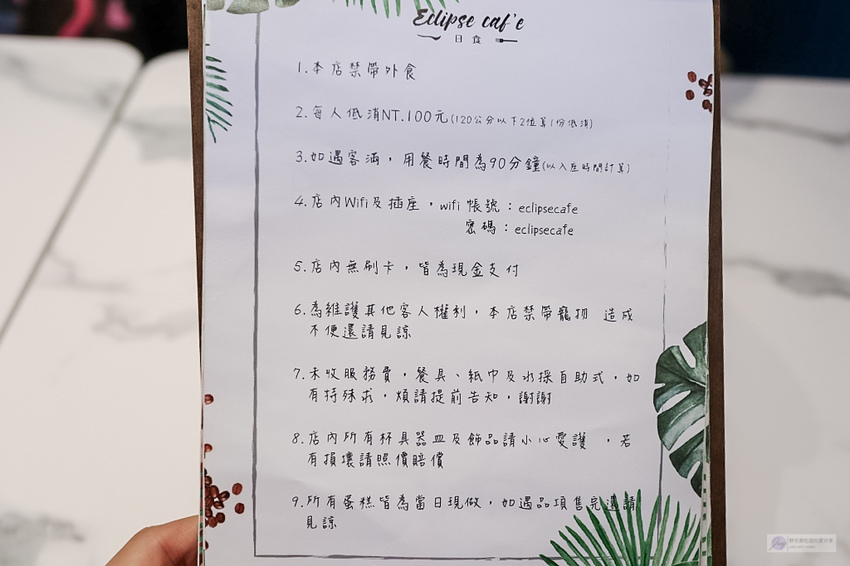 Eclipse caf'e
日食
1.本店禁帶外食
2.每人低消NT.100元(120公分以下2位算1份低消)
3.如遇客滿，用餐時間為90分鐘(以入座時間計算)
4.店內Wifi及插座，wifi 帳號：eclipsecafe
密碼：eclipsecafe
5.店內無刷卡，皆為現金支付
6.為維護其他客人權利，本店禁帶寵物 造成
不便還請見諒
7.未收服務費，餐具、紙巾及水採自助式，如
有特殊求，煩請提前告知，謝謝
8.店內所有杯具器皿及飾品請小心愛護 ，若
有損壞請照價賠償
9.所有蛋糕皆為當日現做，如遇品項售完還請
見諒